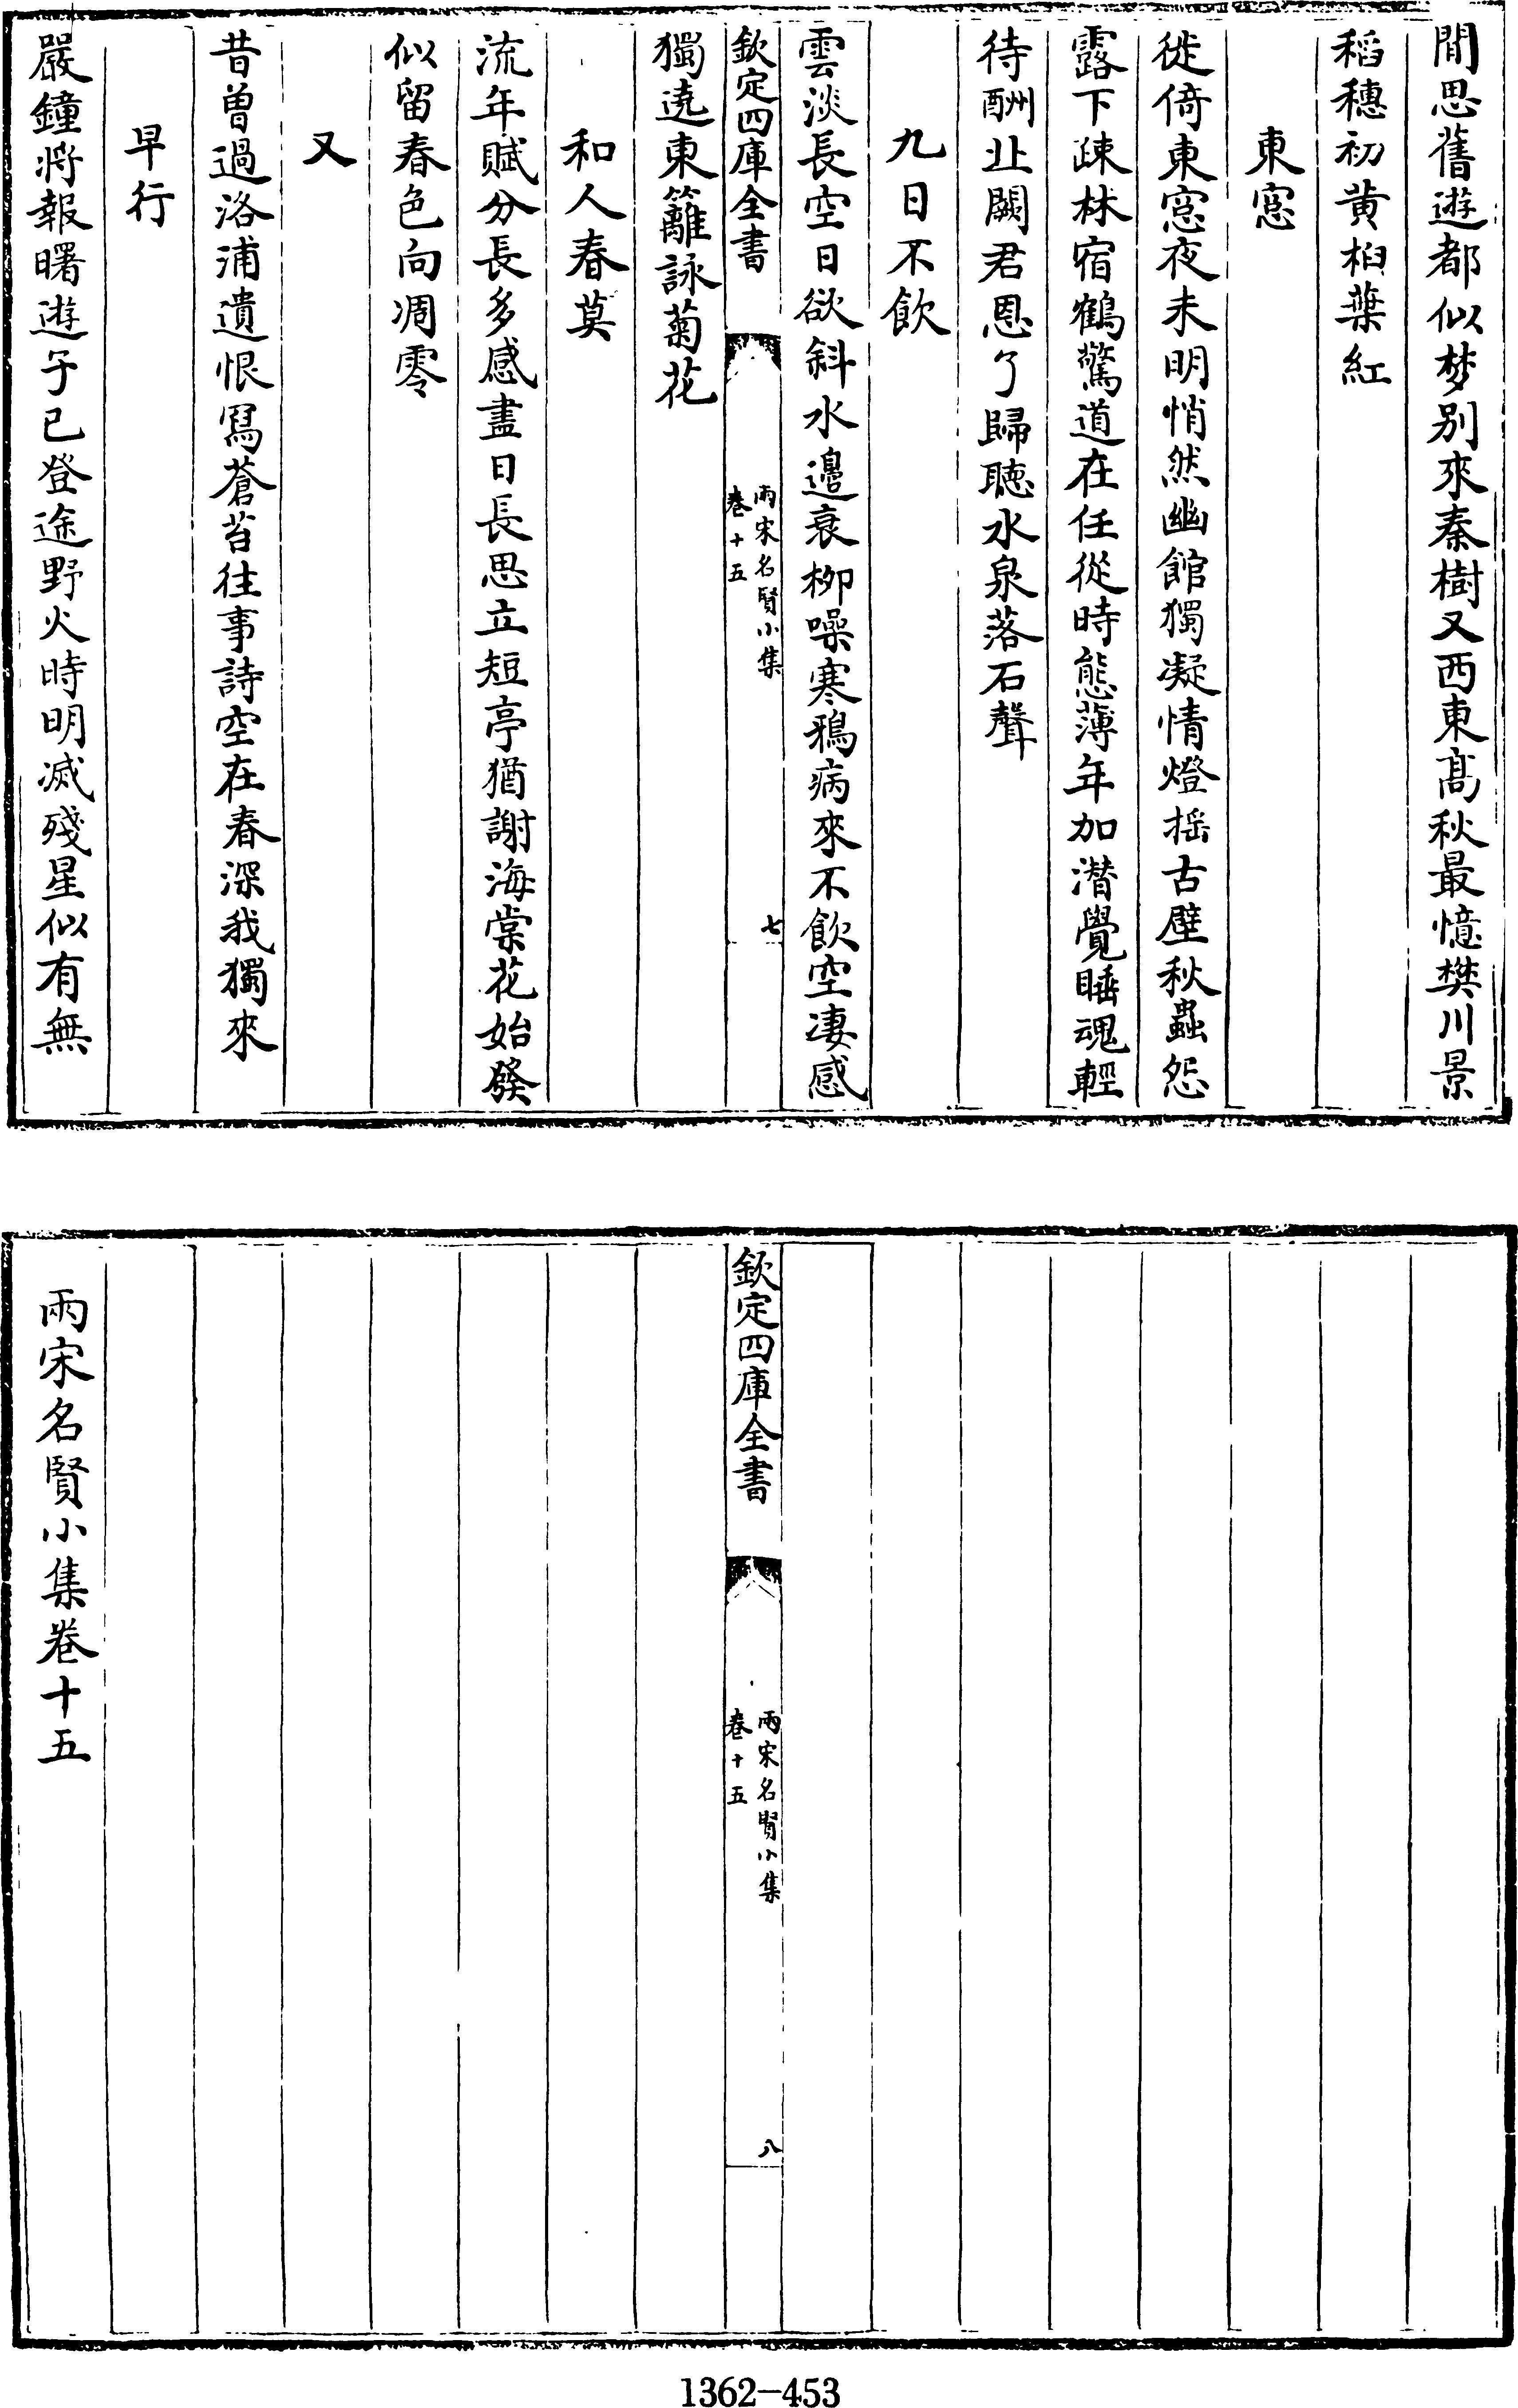 閒思舊遊都似梦别來秦樹又西東髙秋最憶樊川景
稻穗初黄桕葉紅
東窓
徙倚東窓夜未明悄然幽館獨凝情燈揺古壁秋蟲怨
露下疎林宿鶴驚道在任從時態薄年加潜覺睡魂輕
待酬北闕君恩了歸聽水泉落石聲
九日不飲
雲淡長空日欲斜水邊衰栁噪寒鴉病來不飲空凄感
欽定四庫全書
兩宋名賢小集
卷十五
七
獨遶東籬詠菊花
和人春莫
流年賦分長多感盡日長思立短亭猶謝海棠花始發
似留春色向凋零
又
昔曽過洛浦遺恨冩蒼苔往事詩空在春深我獨來
早行
嚴鐘将報曙遊子已登途野火時明滅殘星似有無
欽定四庫全書
兩宋名賢小集
卷十五
八
兩宋名賢小集卷十五
1362-453